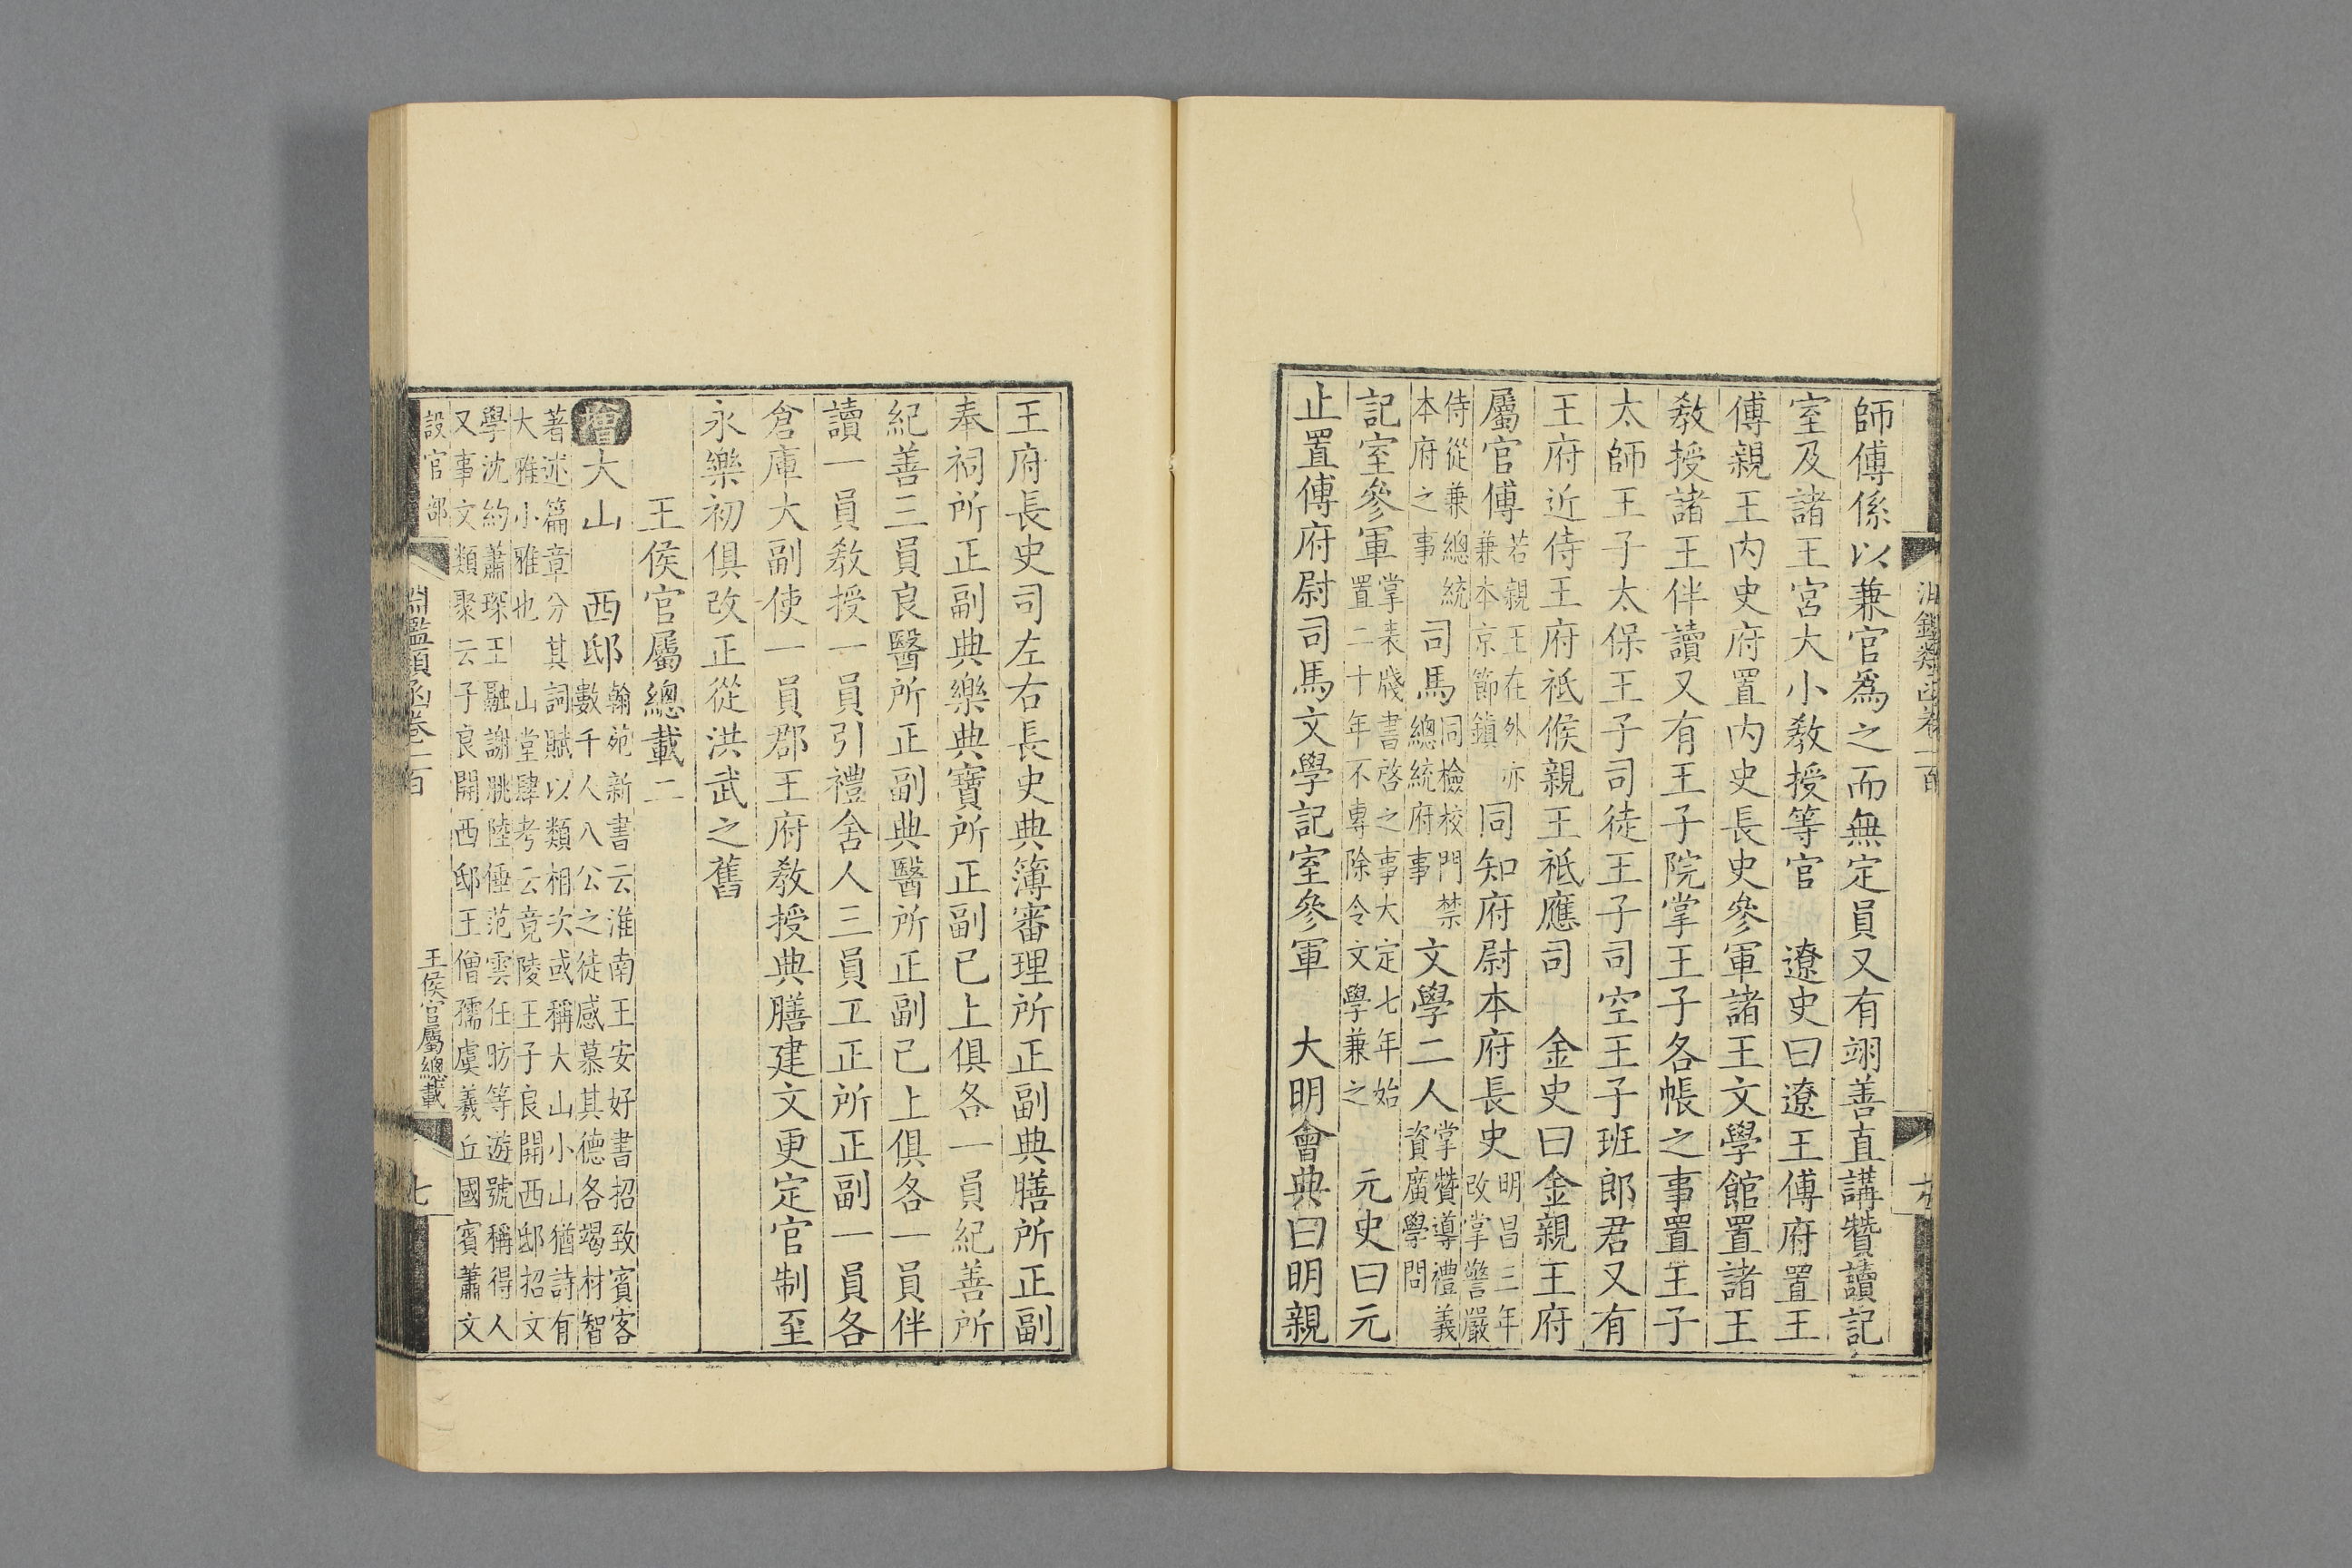 師傅係以兼官爲之而無定員又有翊善直講贊讀記
室及諸王宮大小敎授等官　遼史曰遼王傅府置王
傅親王內史府置內史長史參軍諸王文學館置諸王
敎授諸王伴讀又有王子院掌王子各帳之事置王子
太師王子太保王子司徒王子司空王子班郎君又有
王府近侍王府祗候親王祗應司　金史曰金親王府
屬官傅若親王在外亦兼本京節鎮同知府尉本府長史明昌三年改掌警嚴
侍從兼總統本府之事司馬同檢校門禁總統府事文學二人掌贊導禮義資廣學問
記室參軍掌表牋書啓之事大定七年始置二十年不專除令文學兼之　元史曰元
止置傅府尉司馬文學記室參軍　大明會典曰明親
王府長史司左右長史典簿審理所正副典膳所正副
奉祠所正副典樂典寶所正副已上俱各一員紀善所
紀善三員良醫所正副典醫所正副已上俱各一員伴
讀一員敎授一員引禮舍人三員工正所正副一員各
倉庫大副使一員郡王府敎授典膳建文更定官制至
永樂初俱改正從洪武之舊
王侯官屬總載二
增大山　西邸翰苑新書云淮南王安好書招致賓客數千人八公之徒感慕其德各竭材智
著述篇章分其詞賦以類相次或稱大山小山猶詩有大雅小雅也　山堂肆考云竟陵王子良開西邸招文
學沈約蕭琛王融謝朓陸倕范雲任昉等遊號稱得人又事文類聚云子良開西邸王僧孺虞羲丘國賓蕭文
設官部　淵鑑類函卷一百　王侯官屬總載　七